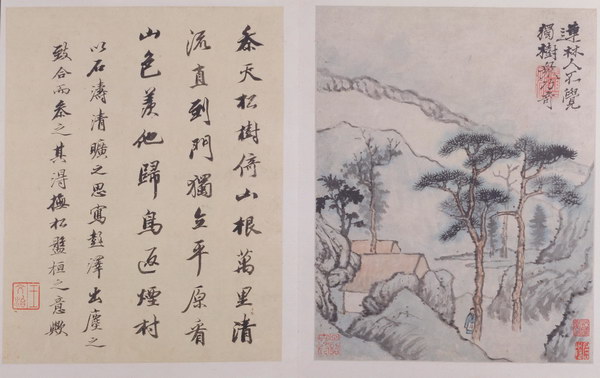 連林人不覺
獨樹眾乃奇
參天松樹倚山根萬里清
流直到門獨立平原看
山色羨他歸鳥返煙村
以石濤清曠之思寫彭澤出塵之
致合而參之其得撫松盤桓之意歟